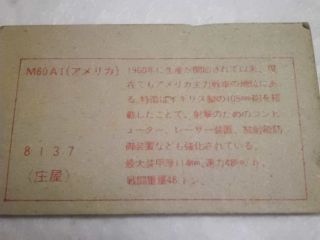 M60A1(アメリカ)
8137
(庄屋)
1960年に生産が開始されて以来、現
在でもアメリカ主力戦車の地位にあ
る。特徴はイギリス製の105mm砲を搭
載したことで、射撃のためのコンピ
ューター、レーザー装置、放射能防
御装置なども強化されている。
最大装甲厚114mm、速力48km/h、
戦闘重量48トン。